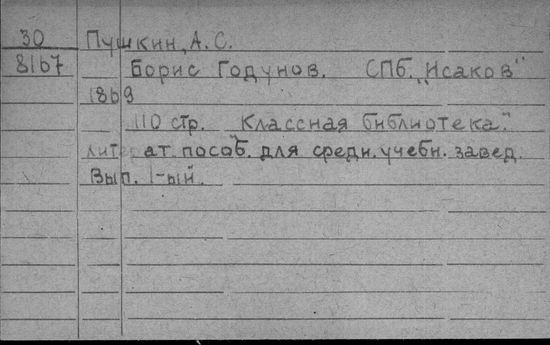 30 Пушкин, А.С.
8167 Борис Годунов. СПб. "Исаков"
1869
110 стр. "Классная библиотека".
Литерат. пособ. для средн. учебн. завед.
Вып. 1-ый.